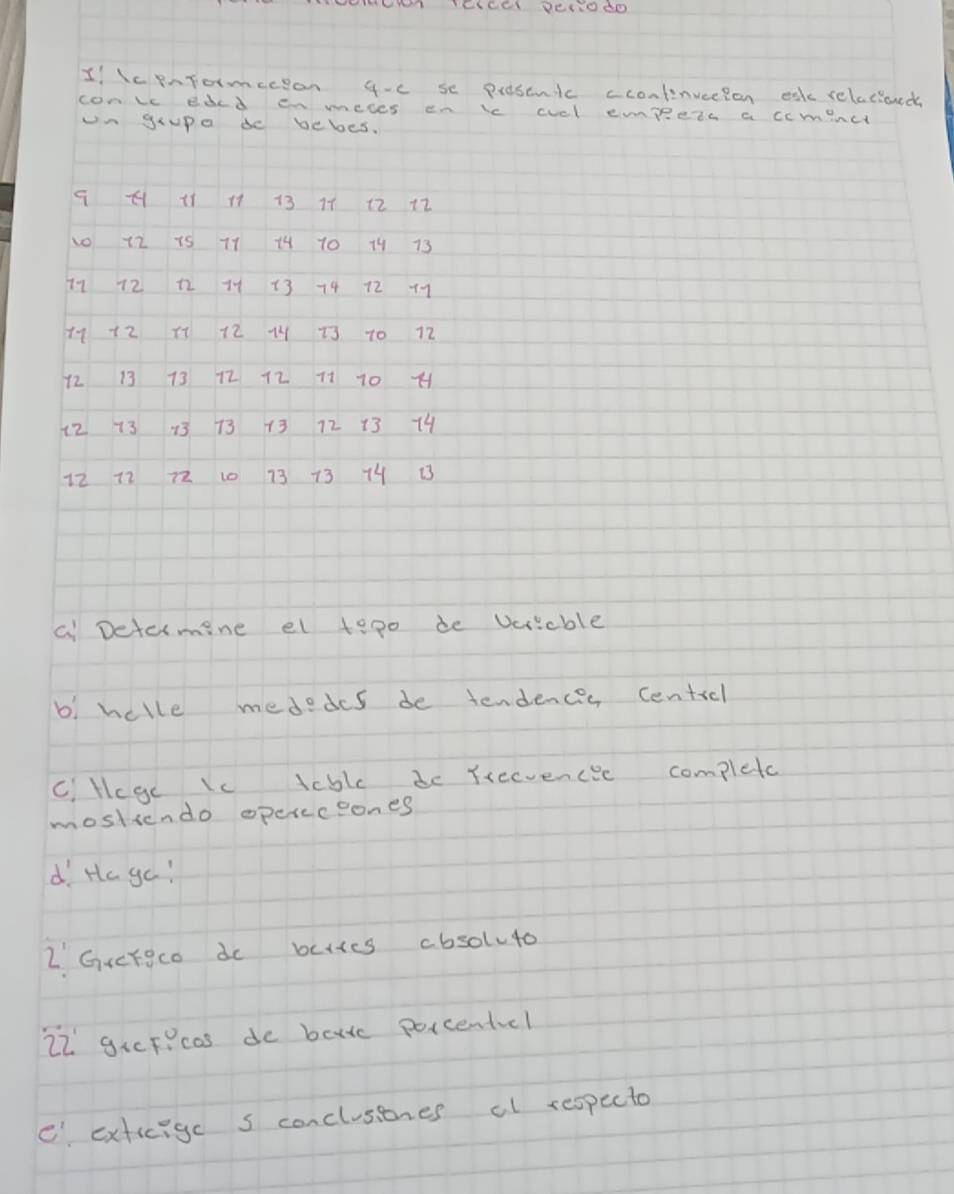 nivelación Tercer periodo
1. la información que se presenta acontinuación esta relacionada
con la edad en meces en la cual empieza a caminar
un grupo de bebes.
9 14 11 11 13 11 12 12
10 12 15 11 14 10 14 13
11 12 12 11 13 14 12 11
11 12 11 12 14 13 10 12
12 13 13 12 12 11 10 11
12 13 13 13 13 12 13 14
12 12 12 10 13 13 14 13
a. Determine el tipo de Variable
b. halle medidas de tendencia central
C. Haga la tabla de frecuencia completa
mostrando operaciones
d. Haga:
I. Grafico de barras absoluto
II. graficas de barra porcentual
e. extraiga 5 conclusiones al respecto